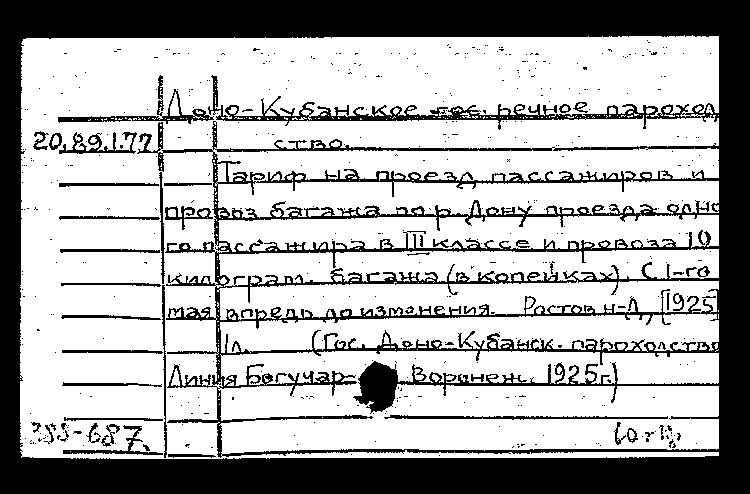 Доно-Кубанское гос. речное пароход
20.89.1.77 ство.
Тариф на проезд пассажиров и
провоз багажа по р. Дону проезда одно
го пассажира в III классе и провоза 10
килограм. багажа (в копейках). С 1-го
мая впредь до изменения. Ростов н-Д, [1925]
1л. (Гос. Доно-Кубанск. пароходство
Линия Богучар- Воронеж. 1925г.)
-687.